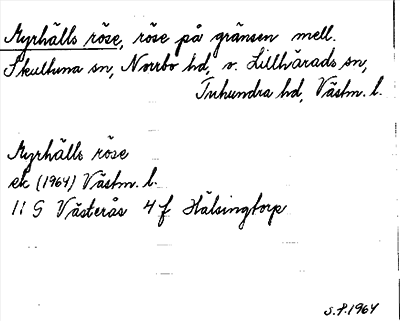 Myrhälls röse, röse på gränsen mell.
Skultuna sn, Norrbo hd, o. Lillhärads sn,
Tuhundra hd, Västm. l.
Myrhälls röse
ek (1964) Västm. l.
11 G Västerås 4 f Hälsingtorp
S.P. 1964